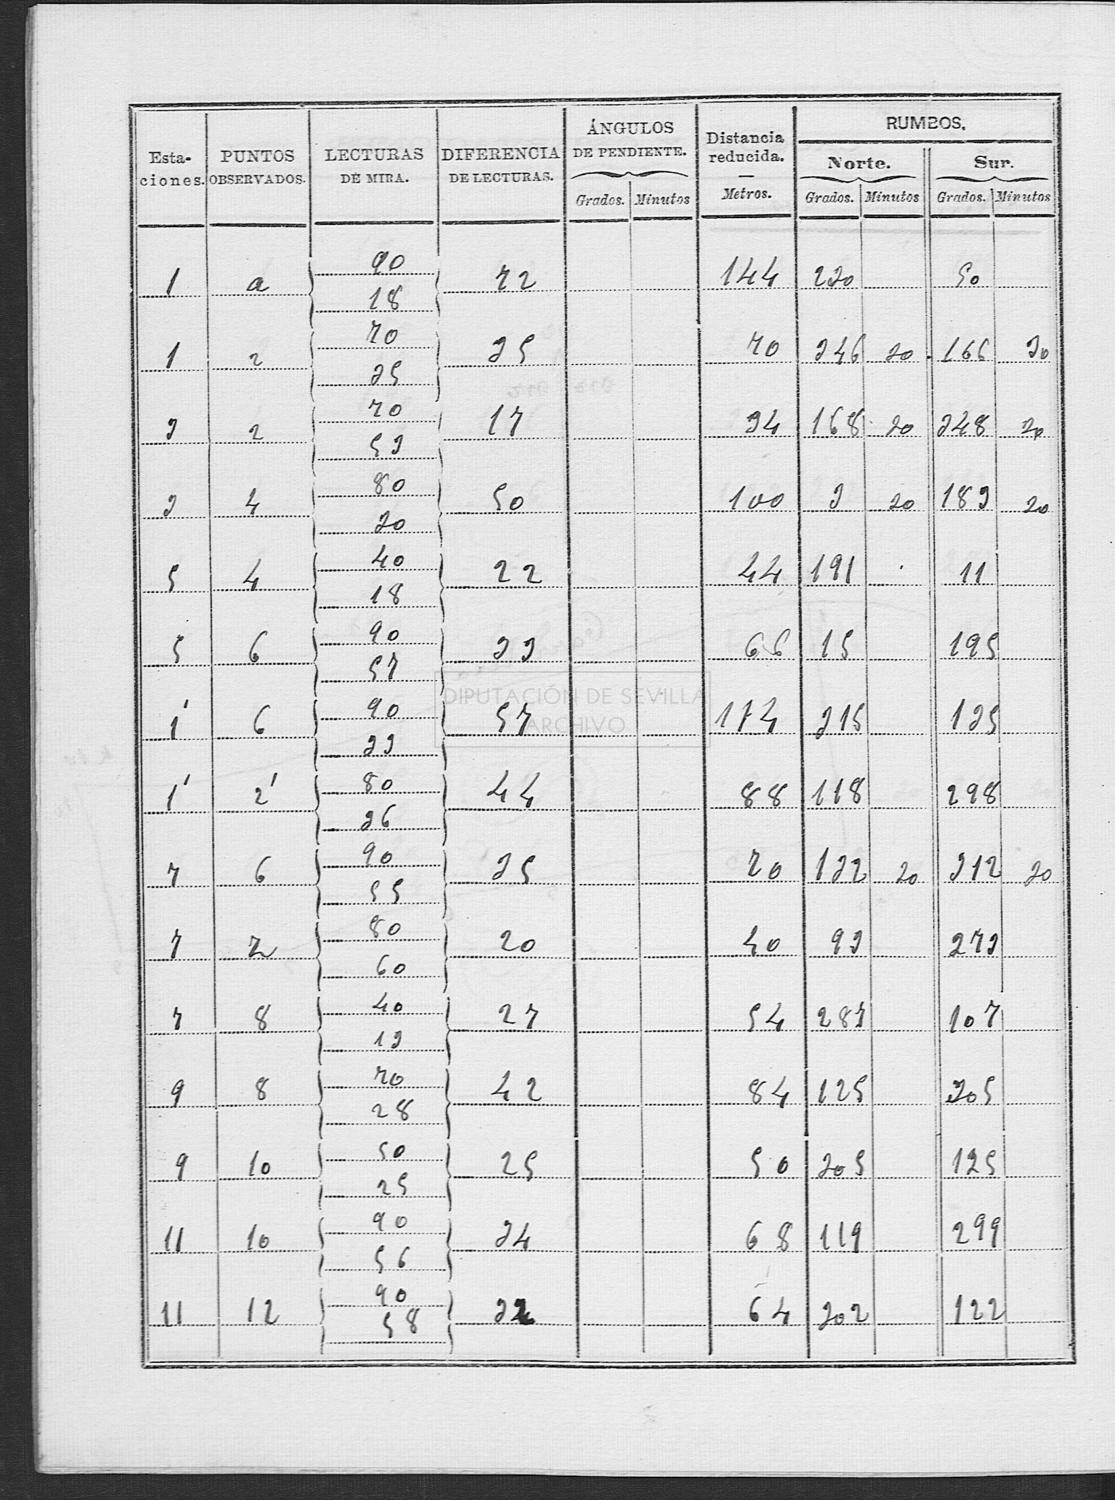 Esta-
ciones.
PUNTOS
OBSERVADOS.
LECTURAS
DE MIRA.
DIFERENCIA
DE LECTURAS.
ÁNGULOS
DE PENDIENTE.
Grados. Minutos
Distancia
reducida.
Metros.
RUMBOS.
Norte. Sur.
Grados. Minutos Grados. Minutos
1 a 90 72 144 230 50
18
1 2 70 35 70 346 30 166 30
35
3 2 70 17 34 168 30 348 30
53
3 4 80 50 100 3 30 183 30
30
5 4 40 22 44 191 11
18
5 6 90 33 66 15 195
57
1' 6 90 57 174 315 135
33
1' 2' 80 44 88 118 298
36
7 6 90 35 70 132 30 312 30
55
7 Z 80 20 40 93 273
60
7 8 40 27 54 287 107
13
9 8 70 42 84 125 305
28
9 10 50 25 50 305 125
25
11 10 90 34 68 119 299
56
11 12 90 32 64 302 122
58
DIPUTACIÓN DE SEVILLA
ARCHIVO